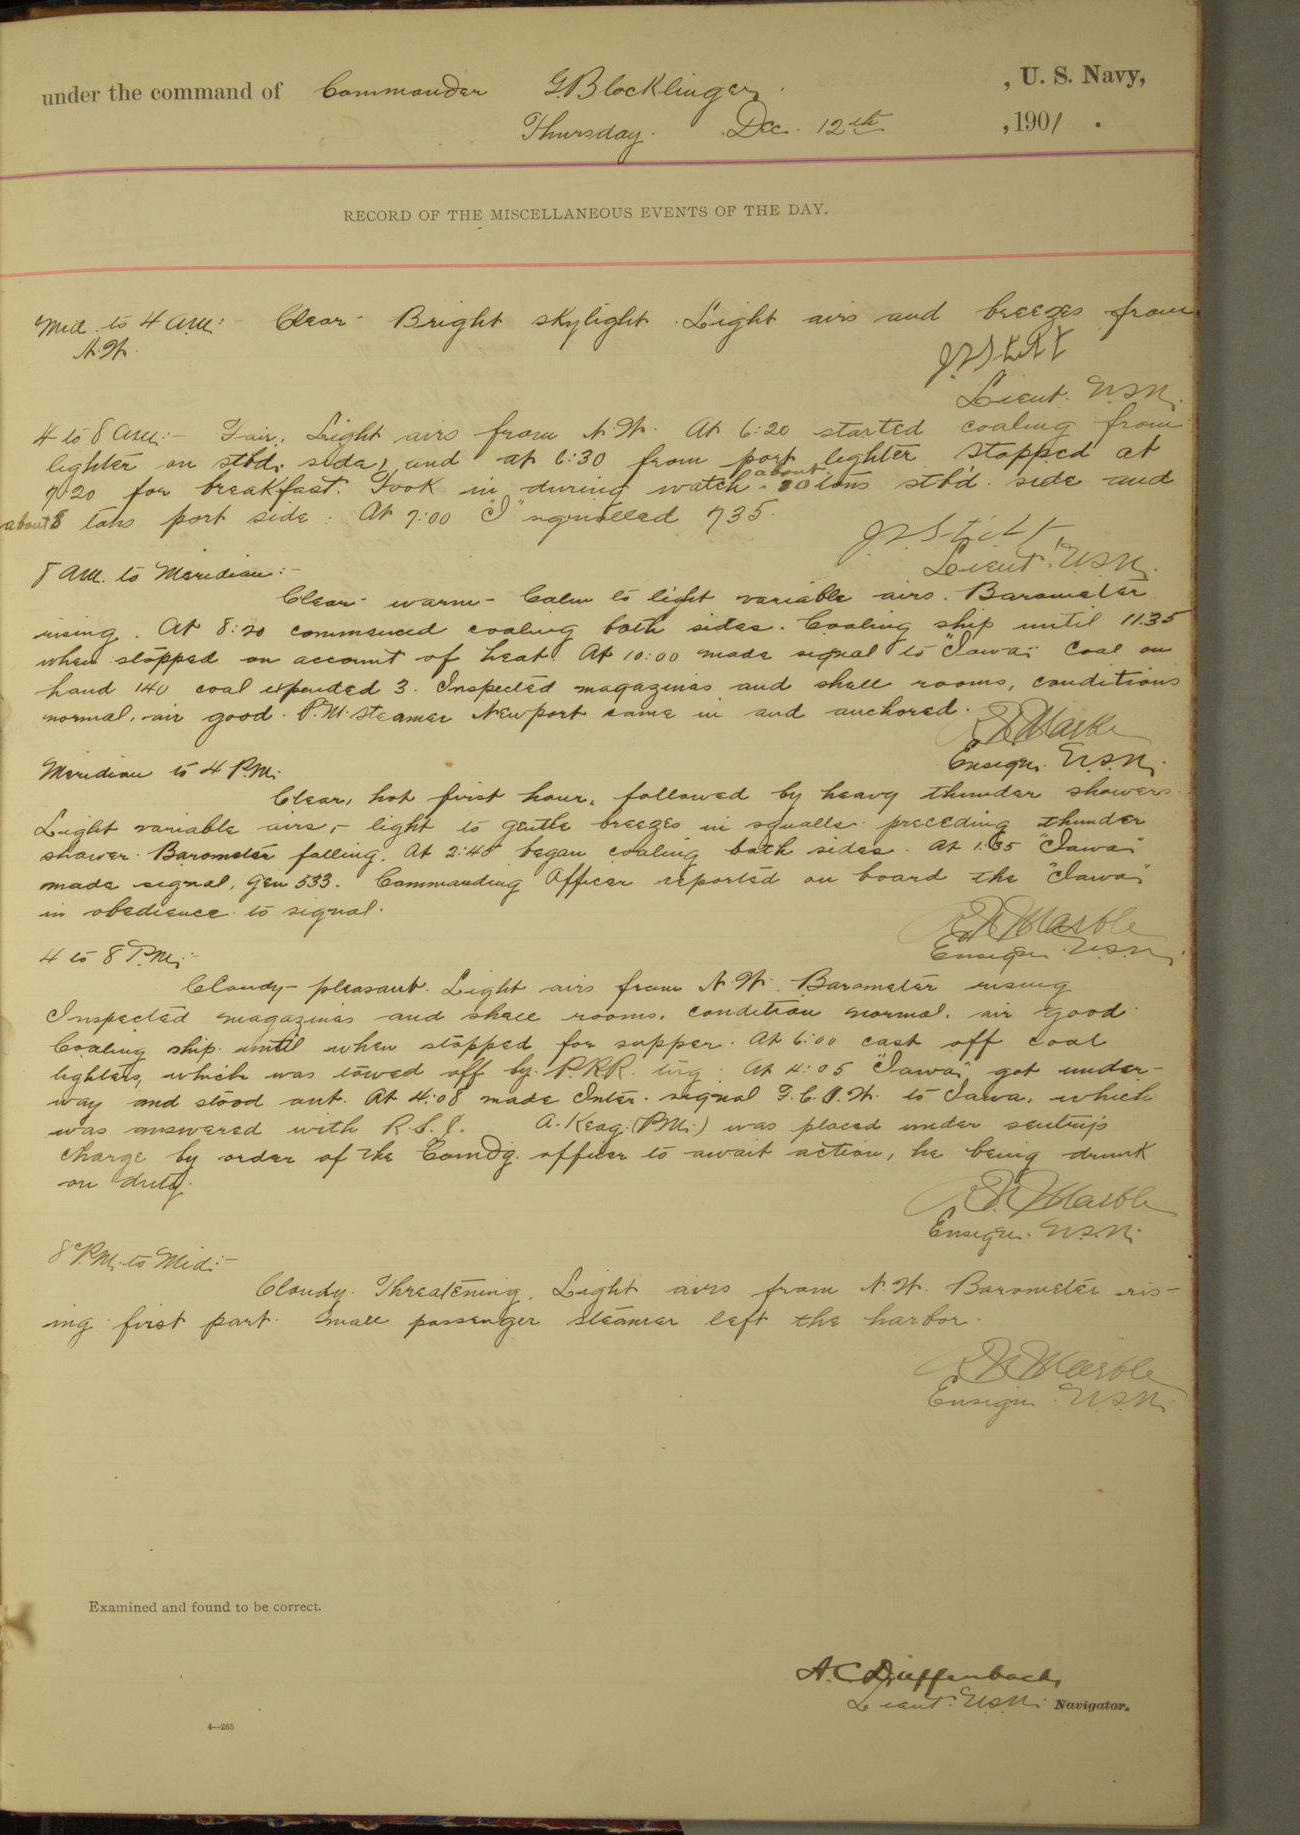 under the command of Commander G. Blocklinger , U. S. Navy,
Thursday. Dec. 12th , 1901 .
RECORD OF THE MISCELLANEOUS EVENTS OF THE DAY.
Mid. to 4 a.m.:- Clear - Bright skylight. Light airs and breezes from
N.W.
Lieut. U.S.N.
4 to 8 a.m.:- Fair. Light airs from N.W. At 6:20 started coaling from
lighter on stbd. side, and at 6:30 from port lighter stopped at
7:20 for breakfast. Took in during watch about tons stb'd. side and
about 8 tons port side. At 7:00 "I" signalled 735.
Lieut. U.S.N.
8 a.m. to Meridian:-
Clear - warm - Calm to light variable airs. Barometer
rising. At 8:20 commenced coaling both sides. Coaling ship until 11.35
when stopped on account of heat. At 10:00 made signal to "Iowa" Coal on
hand 140 coal expended 3. Inspected magazines and shell rooms, conditions
normal, air good. P.M. steamer Newport came in and anchored.
R.N. Marble
Ensign. U.S.N.
Meridian to 4 P.M.
Clear, hot first hour, followed by heavy thunder showers
Light variable airs, - light to gentle breezes in squalls preceding thunder
shower. Barometer falling. At 2:45 began coaling both sides. At 1:35 "Iowa"
made signal, Gen 533. Commanding Officer reported on board the "Iowa"
in obedience to signal.
R.N. Marble
Ensign U.S.N.
4 to 8 P.M.:-
Cloudy - pleasant. Light airs from N.W. Barometer rising
Inspected magazines and shell rooms, condition normal, air good.
Coaling ship until when stopped for supper. At 6:00 cast off coal
lighters, which was towed off by P.R.R. tug. At 4:05 "Iowa" got under-
way and stood out. At 4:08 made Inter. signal to Iowa, which
was answered with A. Keag. (P.M.) was placed under sentry's
charge by order of the Com'dg. officer to await action, he being drunk
on duty.
R.N. Marble
Ensign. U.S.N.
8 P.M. to Mid:-
Cloudy. Threatening. Light airs from N.W. Barometer ris-
ing first part. Small passenger steamer left the harbor.
R.N. Marble
Ensign. U.S.N.
Examined and found to be correct.
A. C. Dieffenbach,
Lieut. U.S.N. Navigator.
4—265